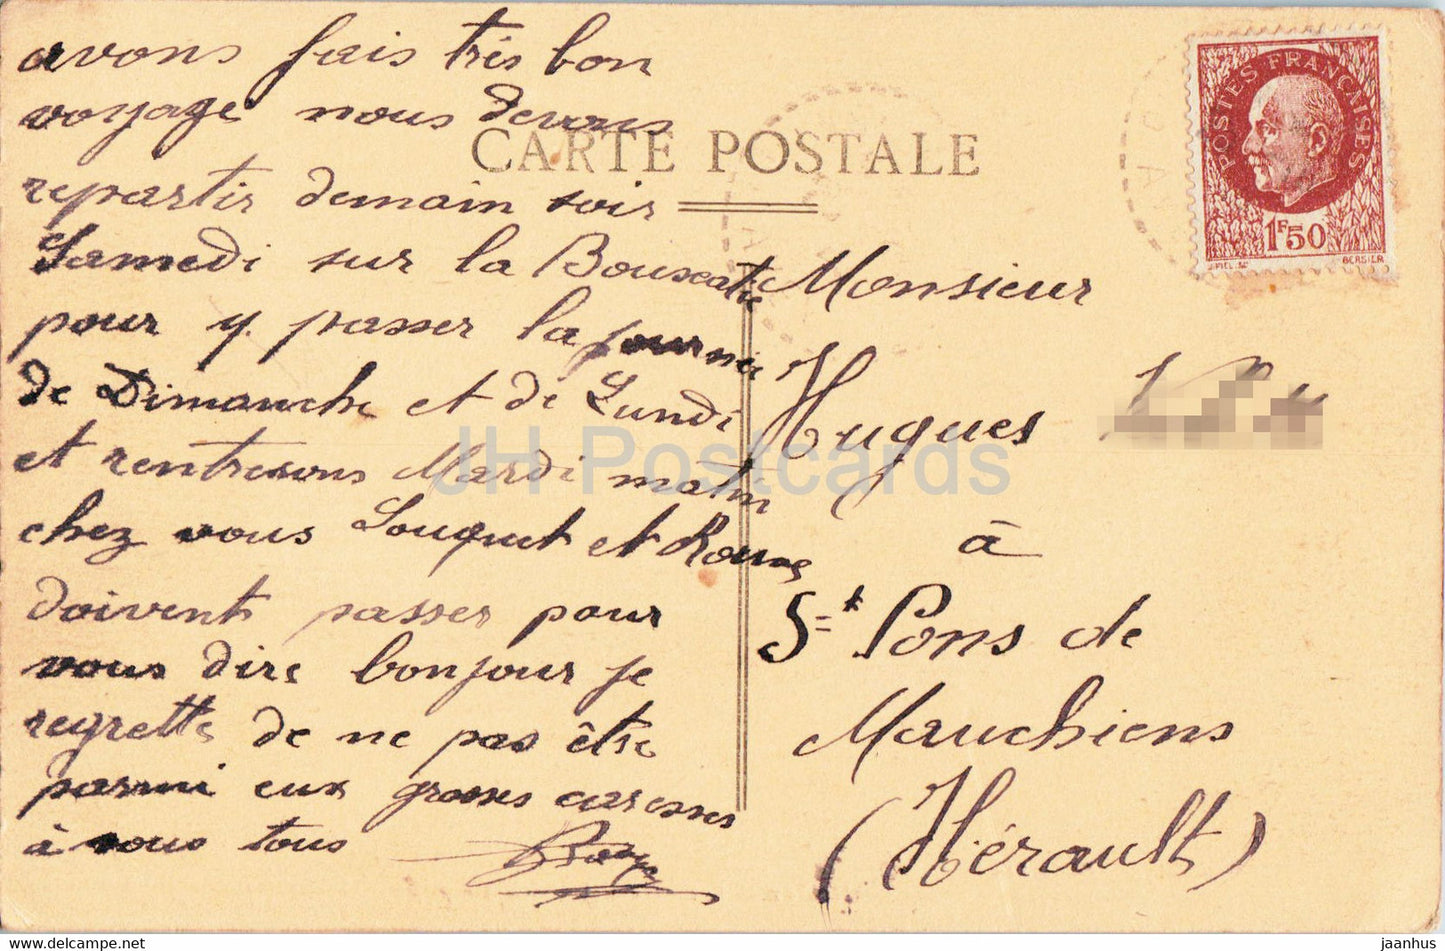 avons fais très bon
voyage nous devons
repartir demain soir
Samedi sur la Bouscatie
pour y passer la journée
de Dimanche et de Lundi
et rentresons Mardi matin
chez vous Souquet et
doivent passer pour
vous dire bonjour je
regrette de ne pas être
parmi eux grosses caresses
à vous tous
CARTE POSTALE
POSTES FRANÇAISES
1F50
BERSIER
Monsieur
Hugues
à
St Pons de
Mauchiens
(Hérault)
JH Postcards
jaanhus@europe.com
jaanhus